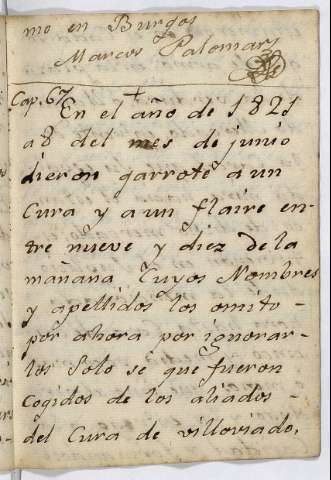 mo en Burgos
Marcos Palomar
Cap. 67
En el año de 1821
a 8 del mes de junio
dieron garrote a un
Cura y a un flaire en-
tre nueve y diez de la
mañana Cuyos Nombres
y apellidos los omito -
por ahora por ignorar-
los Solo se que fueron
Cogidos de los aliados -
del Cura de villoviado.